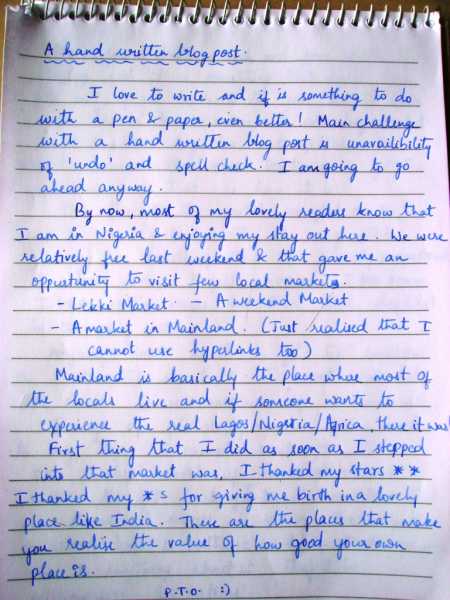 A hand written blog post.
I love to write and if is something to do
with a pen & paper, even better! Main challenge
with a hand written blog post is unavailibility
of 'undo' and spell check. I am going to go
ahead anyway.
By now, most of my lovely readers know that
I am in Nigeria & enjoying my stay out here. We were
relatively free last weekend & that gave me an
oppurtunity to visit few local markets.
- Lekki Market. - A weekend Market
- A market in Mainland. (Just realised that I
cannot use hyperlinks too)
Mainland is basically the place where most of
the locals live and if someone wants to
experience the real Lagos/Nigeria/Africa, there it was!
First thing that I did as soon as I stepped
into that market was, I thanked my stars * *
I thanked my *s for giving me birth in a lovely
place like India. These are the places that make
you realise the value of how good your own
place is.
P.T.O. :)